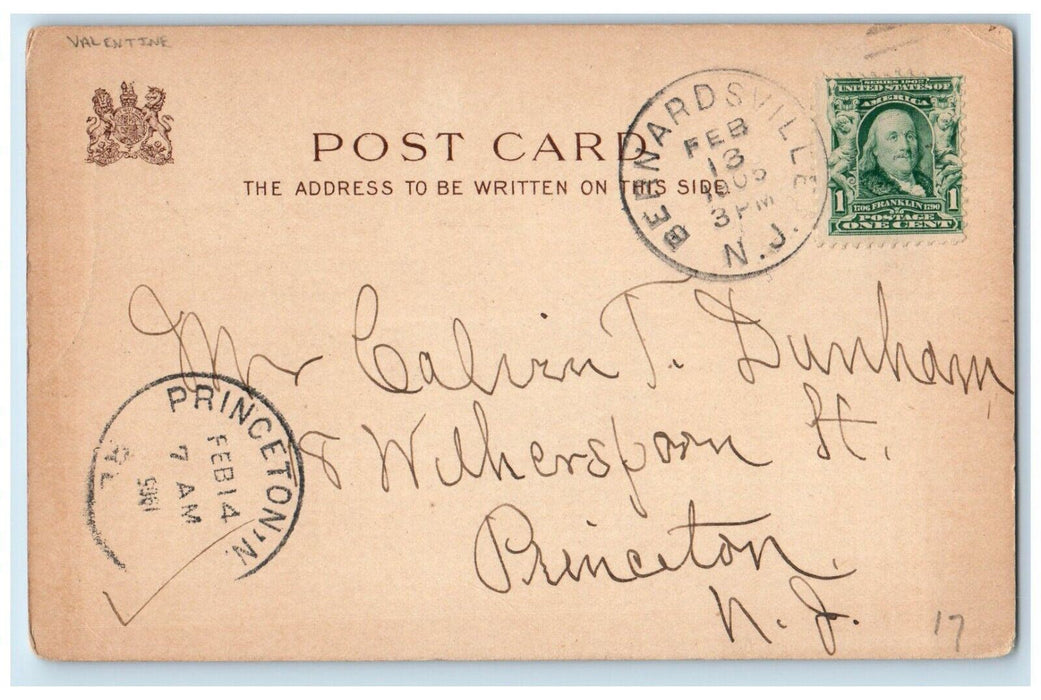 VALENTINE
POST CARD
THE ADDRESS TO BE WRITTEN ON THIS SIDE
BERNARDSVILLE
FEB
13
1905
3 PM
N.J.
SERIES 1902
UNITED STATES OF
AMERICA
1 1706 FRANKLIN 1790 1
POSTAGE
ONE CENT
Mr Calvin T. Dunham,
8 Witherspoon St.
Princeton,
N.J.
PRINCETON, N.
FEB 14
7 AM
1905
17